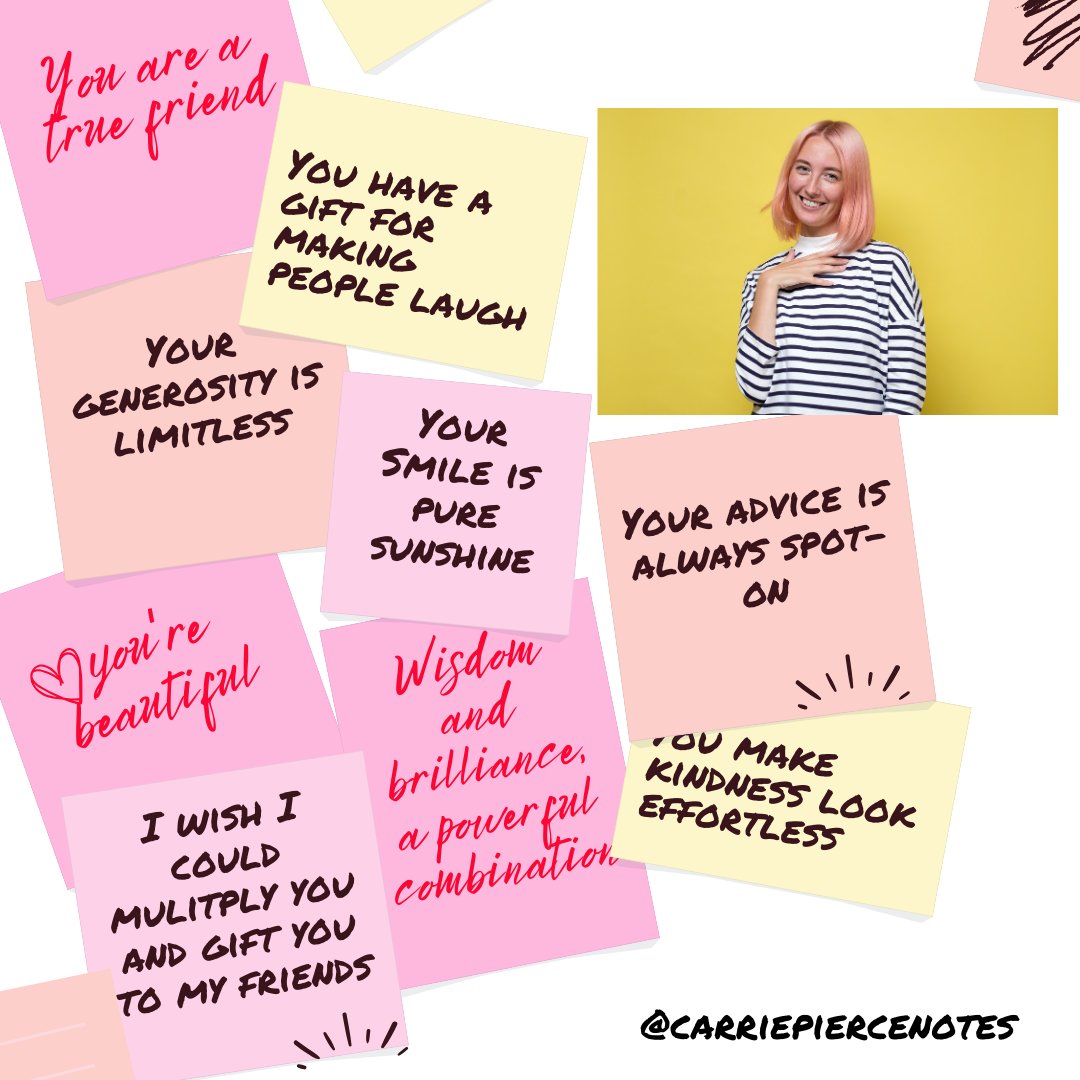 You are a
true friend
You have a
gift for
making
people laugh
Your
generosity is
limitless
Your
Smile is
pure
sunshine
Your advice is
always spot-
on
you're
beautiful
Wisdom
and
brilliance,
a powerful
combination
You make
kindness look
effortless
I wish I
could
mulitply you
and gift you
to my friends
@carriepiercenotes